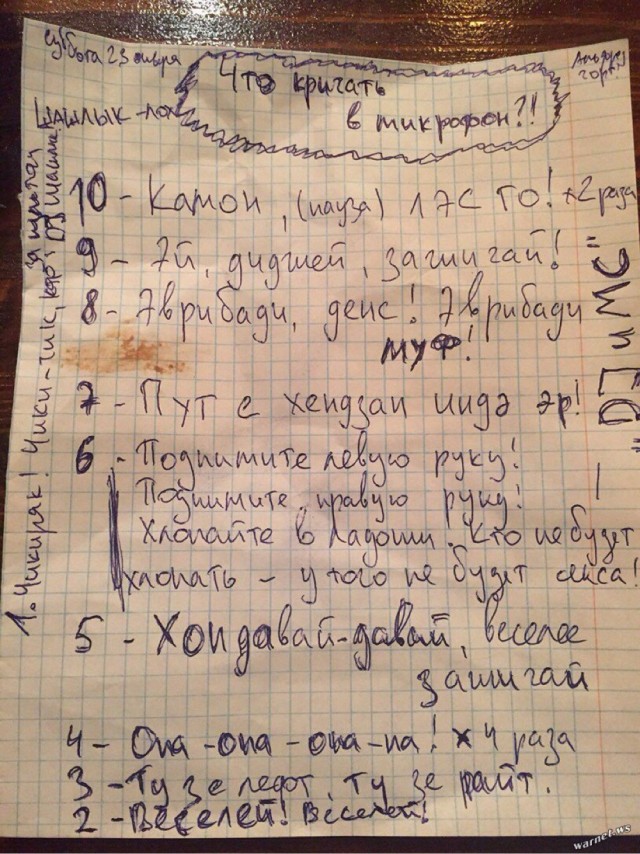 суббота 23 января
Что кричать
в микрофон?!!
ШАШЛЫК-
10 - Камон, (пауза) ЛЭС ГО! x2 раза
9 - Эй, диджей, зажигай!
8 - Эврибади, денс! Эврибади
муф!
7 - Пут е хендзап индэ эр!
6 - Поднимите левую руку!
Поднимите правую руку!
Хлопайте в ладоши. Кто не будет
хлопать - у того не будет секса!
5 - Хоп давай-давай, веселее
зажигай
4 - Опа-опа-опа-па! x 4 раза
3 - Ту зе лефт, ту зе райт.
2 - Веселей! Веселей!
1. Чикиряк! Чики-чик,
за пультом
DJ
"DJ и МС"
warnet.ws